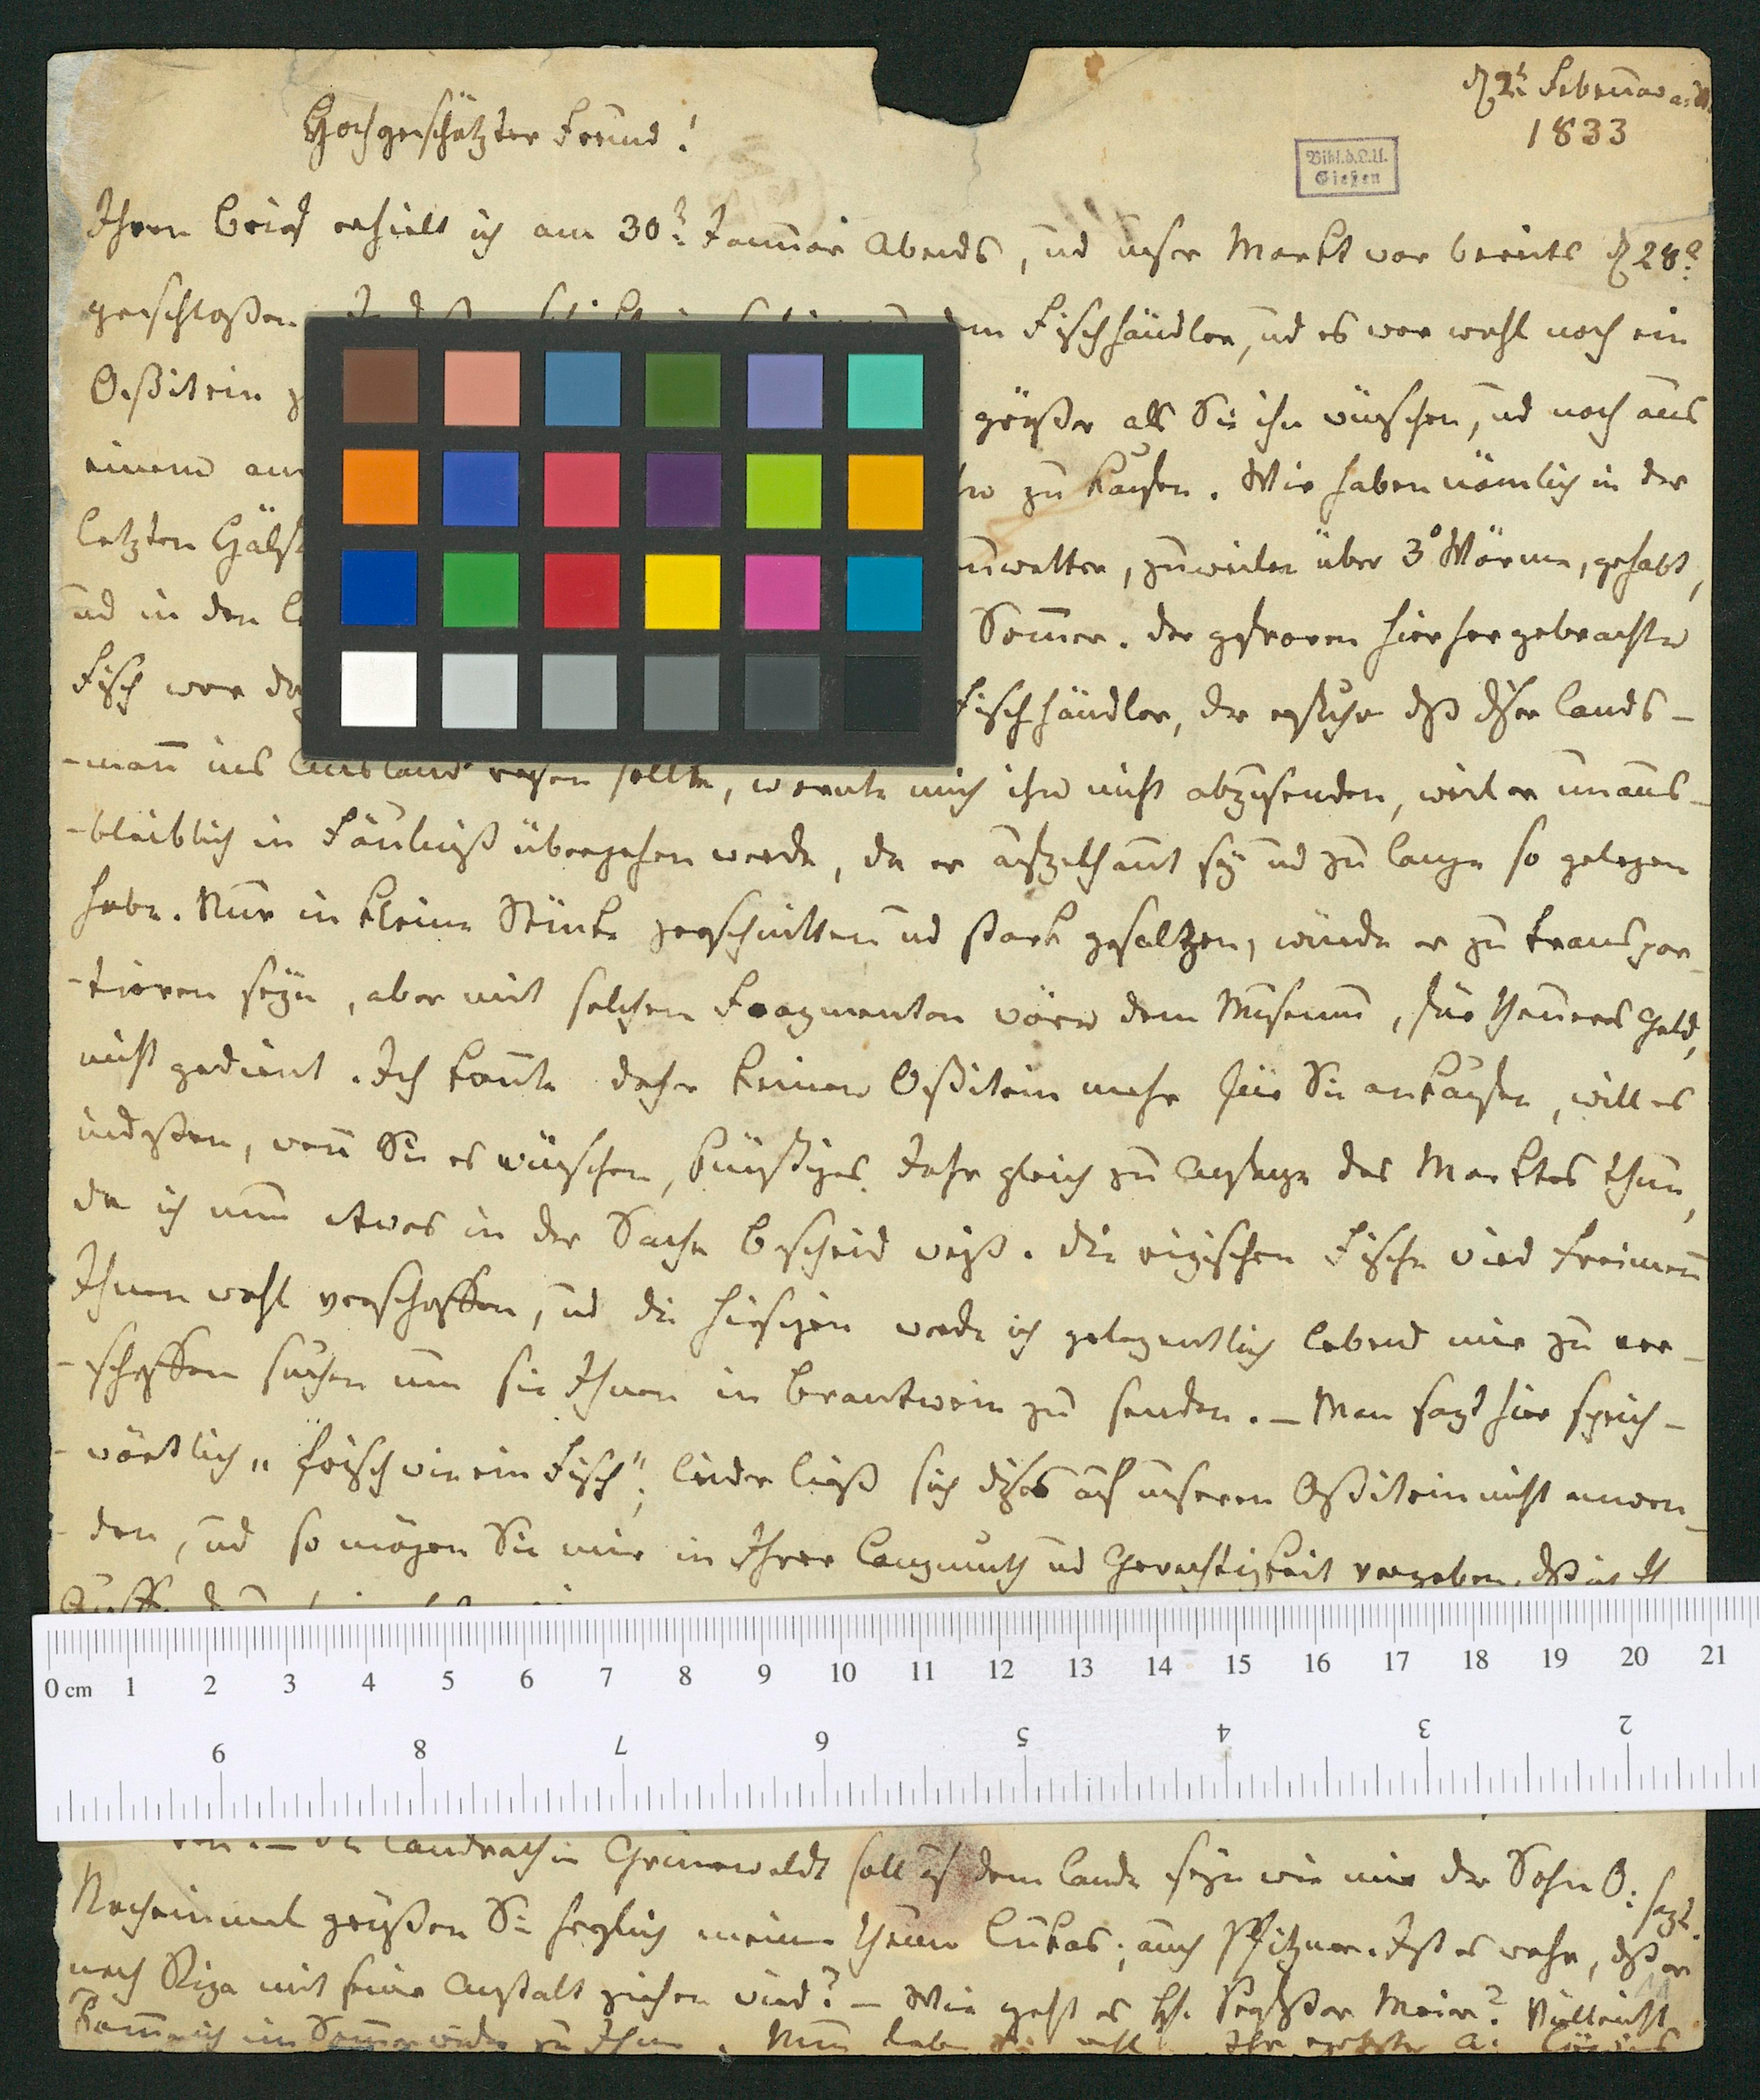 d 2t. Februar a. St.
1833
Hochgeschätzter Freund!
Bibl.d.L.U.
Gießen
Ihren Brief erhielt ich am 30t. Januar Abends, und unser Markt war bereits d 28t.
geschloßen. Fischhändler, und es war wohl noch ein
Oßitrin größer als Sie ihn wünschen, und noch aus
einem zu kaufen. Wir haben nämlich in der
letzten Hälft zuweilen über 3° Wärme, gehabt,
und in den Sommer. Der gefroren hierher gebrachte
Fisch war Fischhändler, der erfuhr dß dser Lands-
-mann ins Ausland reisen sollte, warnte mich ihn nicht abzusenden, weil er unaus-
-bleiblich in Fäulniß übergehen werde, da er aufgethaut sey und zu lange so gelegen
habe. Nur in kleine Stücke zerschnitten und stark gesaltzen, würde er zu transpor-
-tieren seyn, aber mit solchen Fragmenten wäre dem Museum, für theueres Geld,
nicht gedient. Ich konnte daher keinen Oßitrin mehr für Sie ankaufen, will es
indeßen, wenn Sie es wünschen, künftiges Jahr gleich zu Anfange des Marktes thun,
da ich nun etwas in der Sache Bescheid weiß. Die rigischen Fische wird
Ihnen wohl verschaffen, und die hiesigen werde ich gelegentlich lebend mir zu ver-
-schaffen suchen um sie Ihnen in Brantwein zu senden. – Man sagt hier sprich-
-wörtlich „frisch wie ein Fisch"; leider ließ sich dses auf unseren Oßitrin nicht anwen-
-den, und so mögen Sie mir in Ihrer Langmuth und Gerechtigkeit vergeben, dß ich
Landrathin Grünewaldt soll auf dem Lande seyn wie mir der Sohn O: sagt.
Nocheinmal grüßen Sie herzlich meinen theuren Lukas; auch Pfitzner. Ist es wahr, dß er
nach Riga mit seiner Anstalt ziehen wird? – Wie geht es H. Meier? Vielleicht
komme ich im Sommer wieder zu Ihnen. Nun leben Sie wohl. Ihr A:
0 cm 1 2 3 4 5 6 7 8 9 10 11 12 13 14 15 16 17 18 19 20 21
9 8 7 6 5 4 3 2